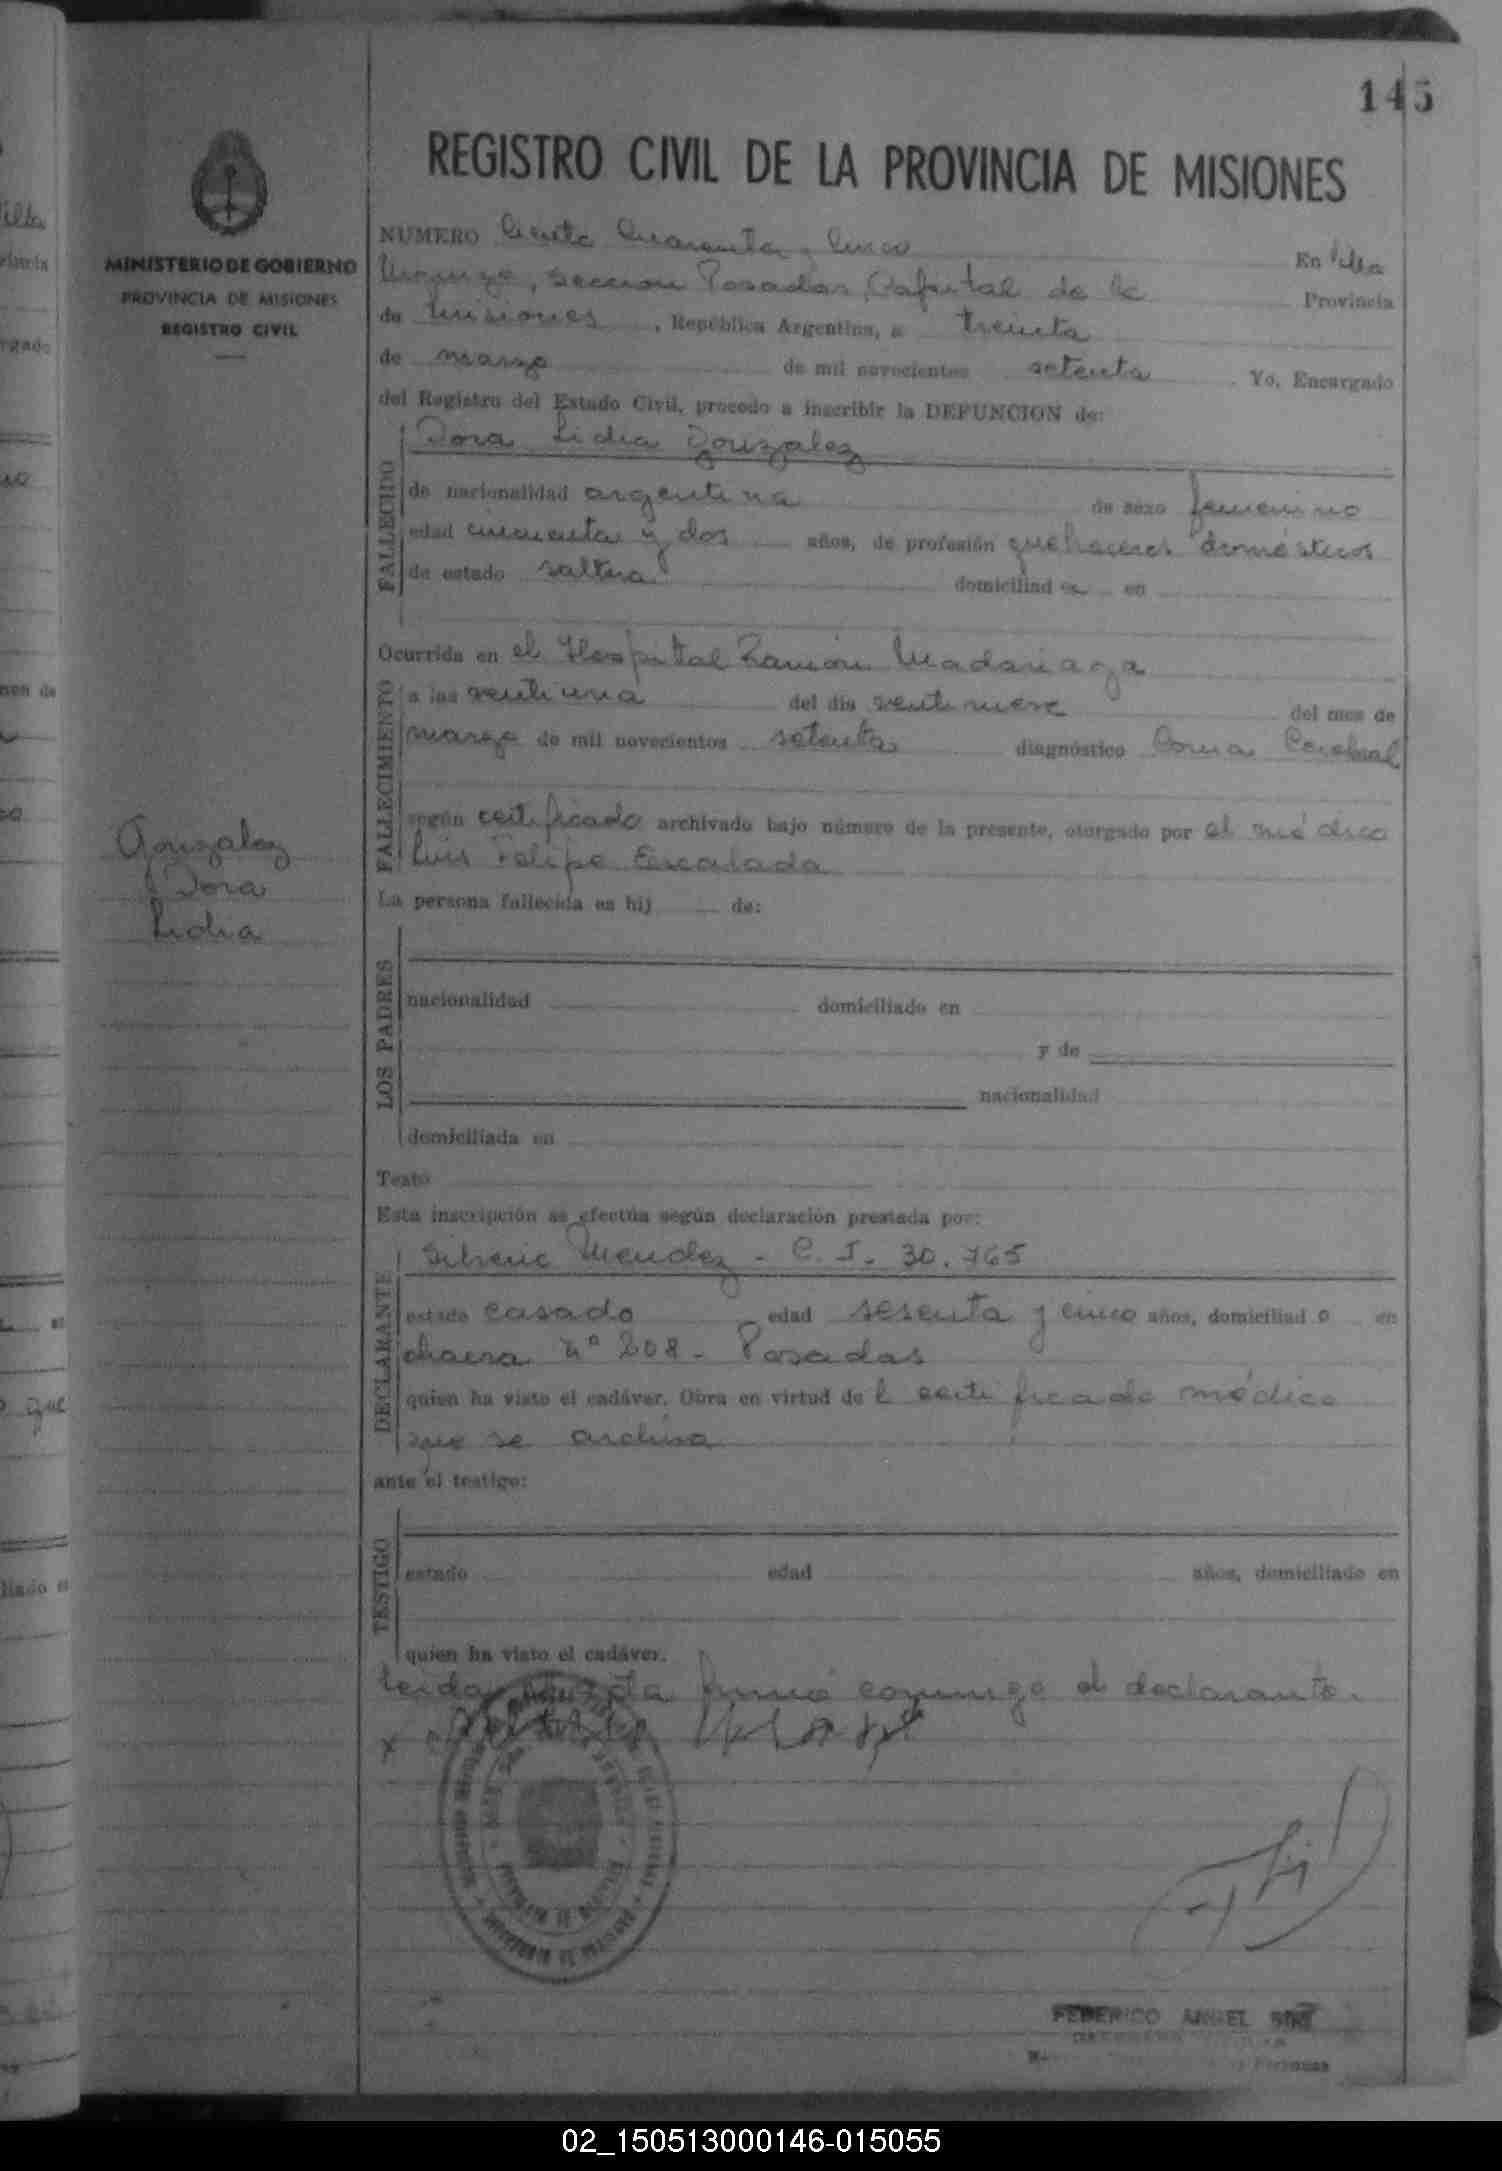 145
REGISTRO CIVIL DE LA PROVINCIA DE MISIONES
MINISTERIO DE GOBIERNO
PROVINCIA DE MISIONES
REGISTRO CIVIL
NUMERO Ciento Cuarenta y Cinco En Villa
Urquiza, sección Posadas, Capital de la Provincia
de Misiones, República Argentina, a treinta
de marzo de mil novecientos setenta. Yo, Encargado
del Registro del Estado Civil, procedo a inscribir la DEFUNCION de:
Dora Lidia Gonzalez
FALLECIDO
de nacionalidad argentina de sexo femenino
edad cincuenta y dos años, de profesión quehaceres domésticos
de estado soltera domiciliad a en
Ocurrida en el Hospital Ramón Madariaga
FALLECIMIENTO
a las veintiuna del día veintinueve del mes de
marzo de mil novecientos setenta diagnóstico Coma Cerebral
según certificado archivado bajo número de la presente, otorgado por el médico
Luis Felipe Escalada
Gonzalez
Dora
Lidia
La persona fallecida es hij de:
LOS PADRES
nacionalidad domiciliado en
y de
nacionalidad
domiciliada en
Texto
Esta inscripción se efectúa según declaración prestada por:
DECLARANTE
Mendez - C. I. 30.765
estado casado edad sesenta y cinco años, domiciliad o en
chacra nº 208 - Posadas
quien ha visto el cadáver. Obra en virtud de l certificado médico
que se archiva
ante el testigo:
TESTIGO
estado edad años, domiciliado en
quien ha visto el cadáver.
Leida el acta firmó conmigo el declarante.
x
FEDERICO ANGEL
Personas
02_150513000146-015055